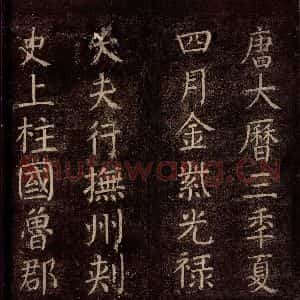 唐大曆三年夏
四月金紫光禄
大夫行撫州刺
史上柱國魯郡